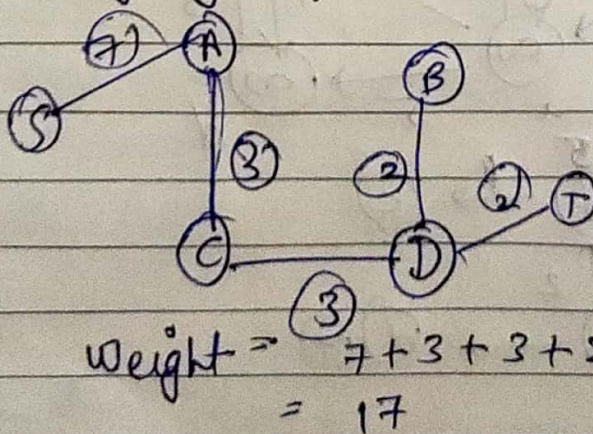 7 A
B
S
3 2 2 T
C D
3
Weight = 7 + 3 + 3 +
= 17